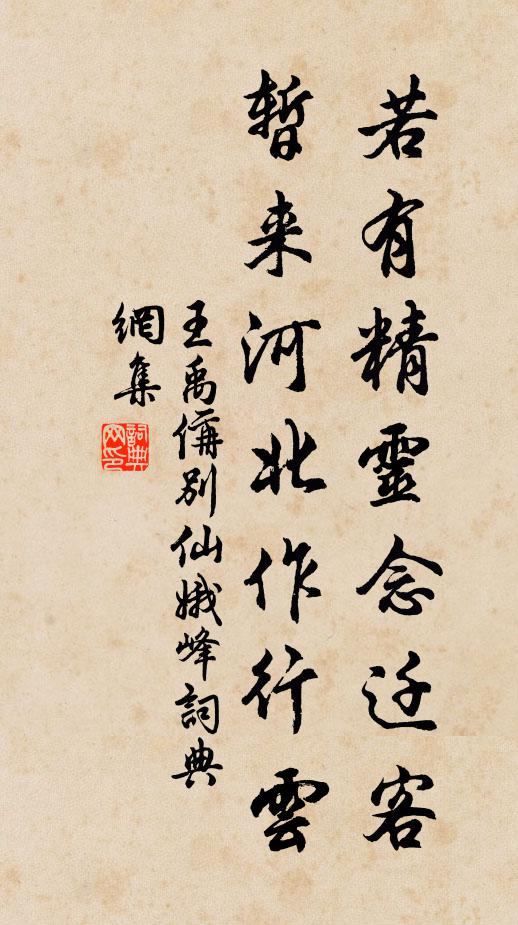 若有精靈念迁客
暫来河北作行雲
王禹偁別仙娥峰詞典
網集
詞典
网印